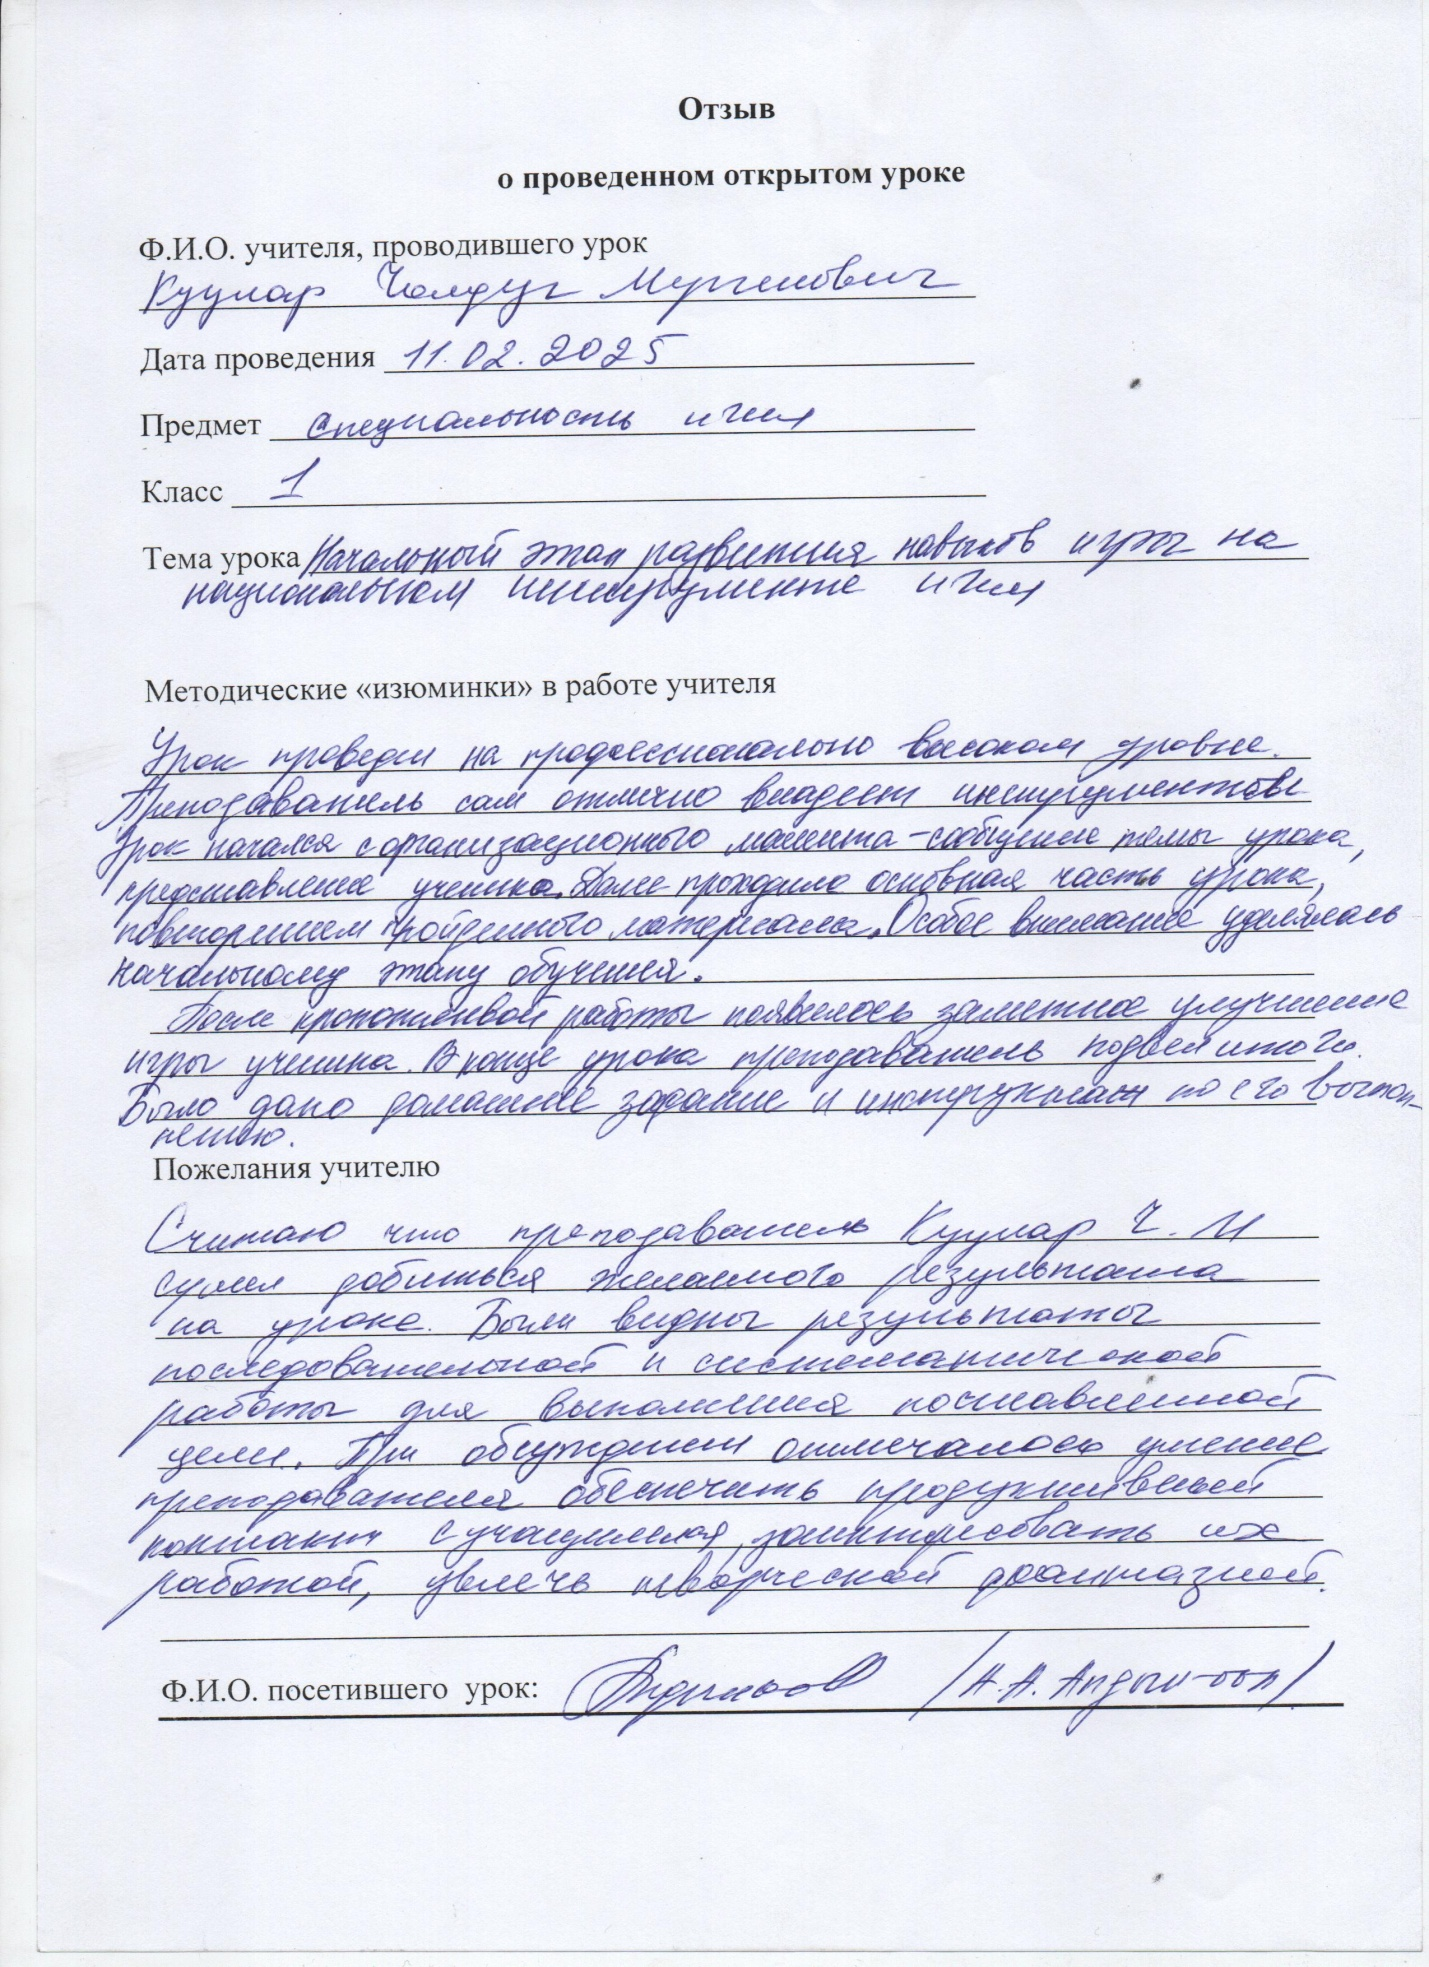 Отзыв
о проведенном открытом уроке
Ф.И.О. учителя, проводившего урок
Куулар Чолдуг Мергенович
Дата проведения 11.02.2025
Предмет Специальность игил
Класс 1
Тема урока Начальный этап развития навыков игры на
национальном инструменте игил
Методические «изюминки» в работе учителя
Урок проведен на профессионально высоком уровне.
Преподаватель сам отлично владеет
Урок начался с организационного момента - сообщение темы урока,
представление ученика. Далее проходило основная часть урока,
повторением пройденного материала. Особое внимание уделялась
начальному этапу обучения.
После работы появилось заметное улучшение
игры ученика. В конце урока преподаватель подвел итоги.
Было дано домашнее задание и инструктаж по его выпол-
нению.
Пожелания учителю
Считаю что преподаватель Куулар Ч. М
сумел добиться желаемого результата
на уроке. Были видны результаты
последовательной и систематической
работы для выполнения поставленной
цели. При обсуждении отмечалось умение
преподавателя обеспечить продуктивный
контакт с учащимися, заинтересовать их
работой, увлечь творческой фантазией.
Ф.И.О. посетившего урок: /А.А. Апдын-оол/